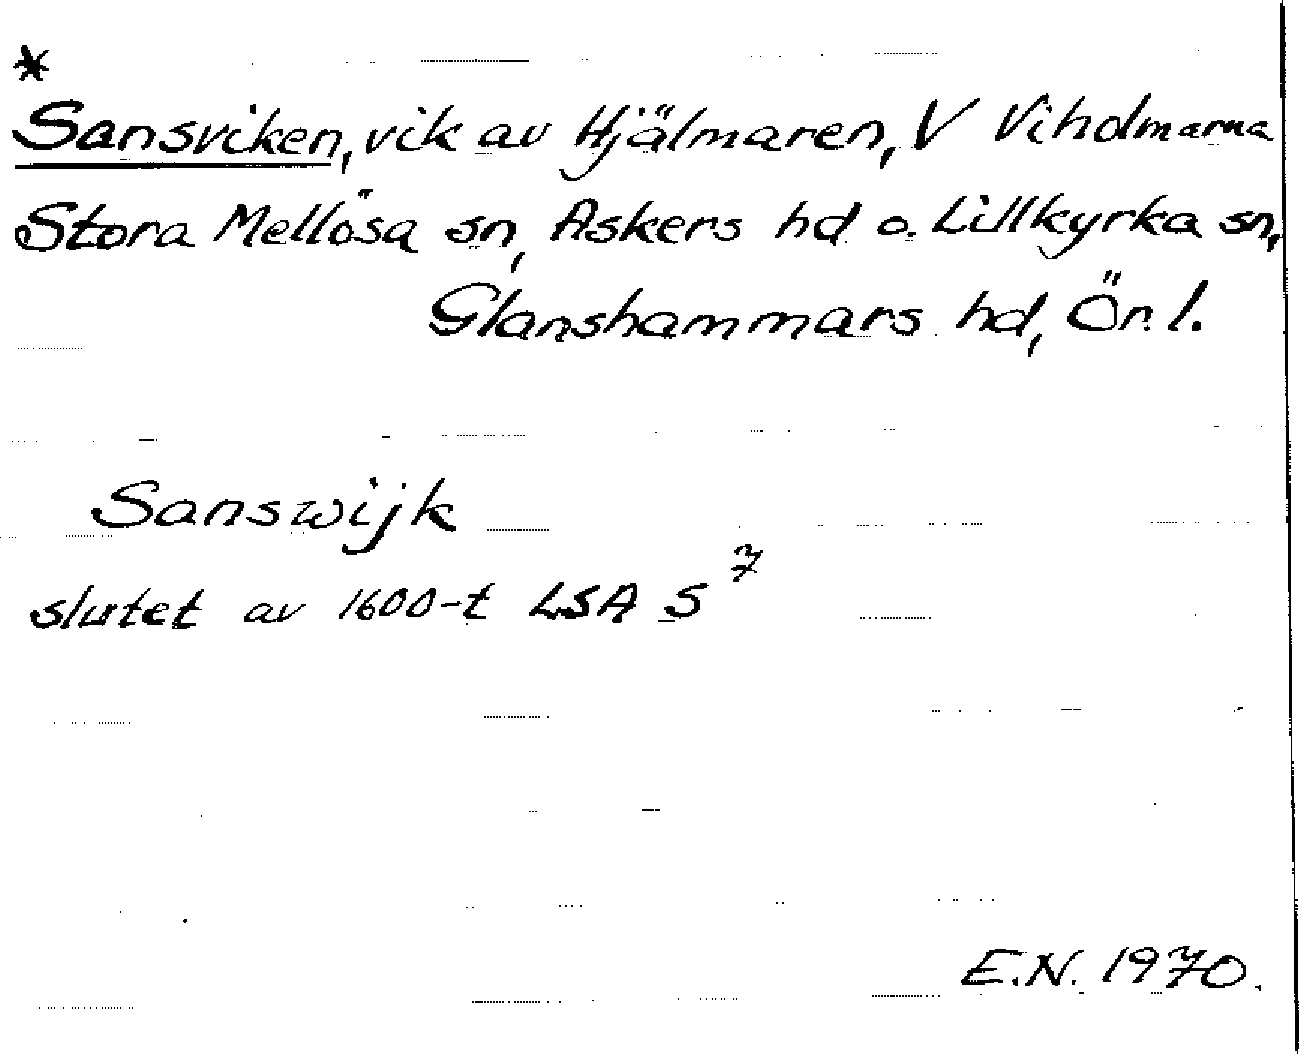 *
Sansviken, vik av Hjälmaren, V Viholmarna
Stora Mellösa sn, Askers hd o. Lillkyrka sn,
Glanshammars hd, Ör. l.
Sanswijk
slutet av 1600-t LSA S 7
E.N. 1970.